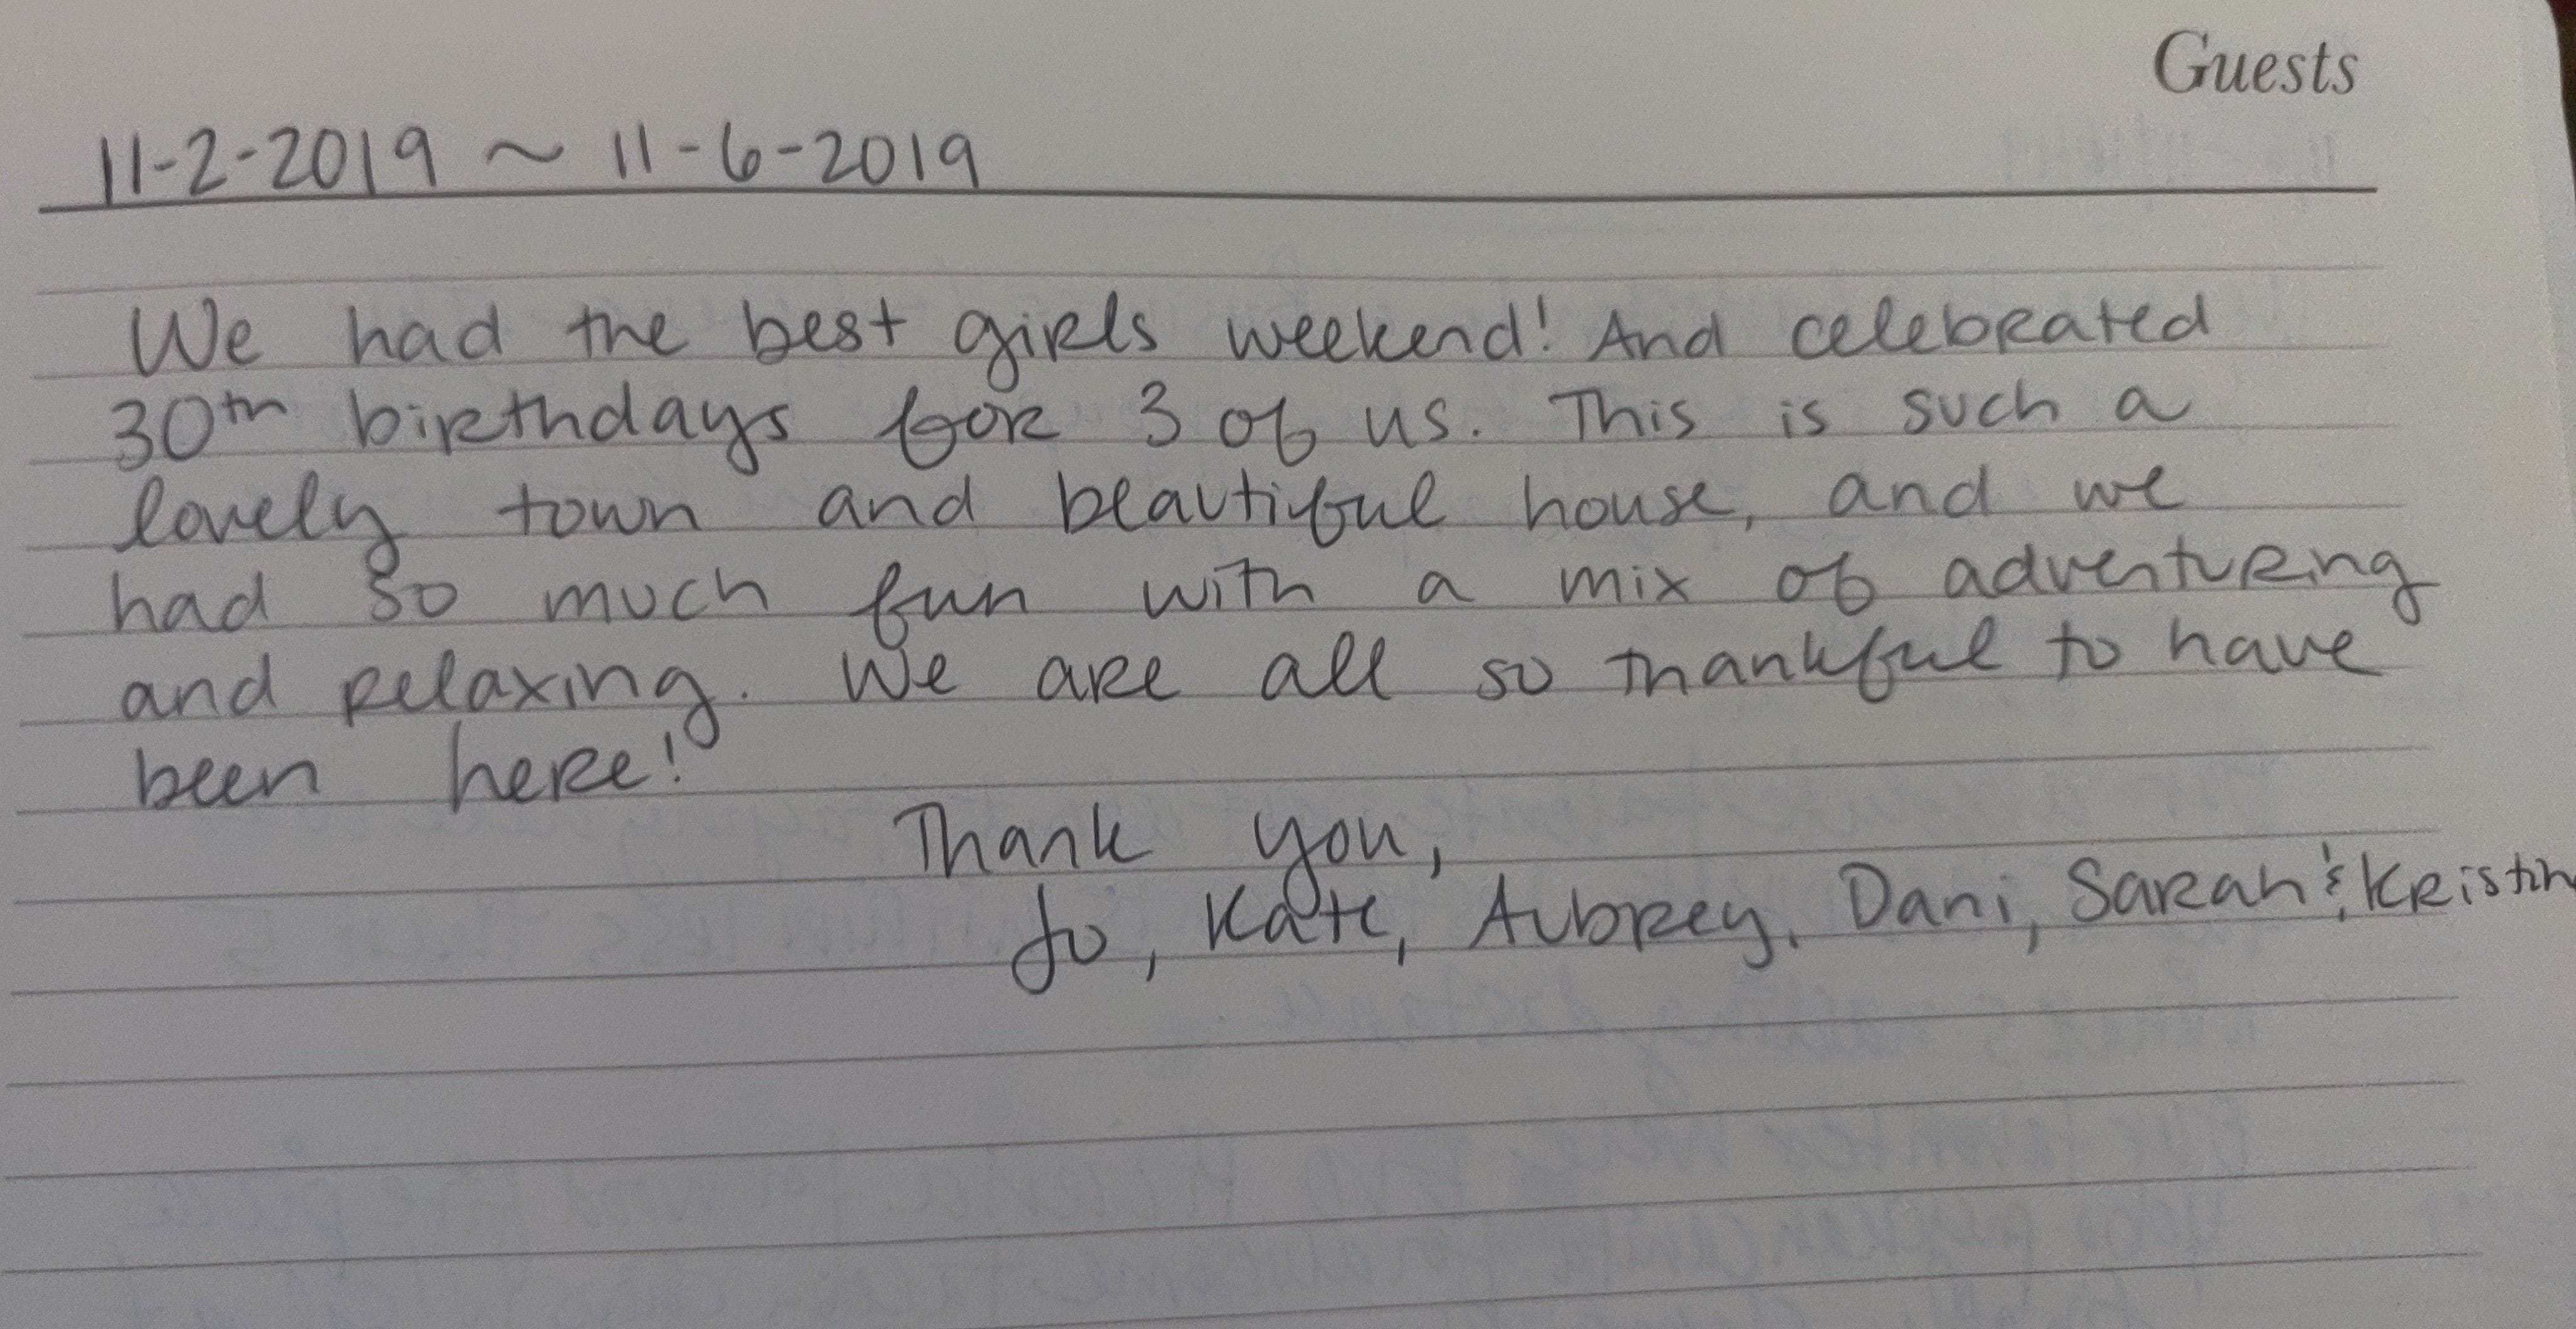 Guests
11-2-2019 ~ 11-6-2019
We had the best girls weekend! And celebrated
30th birthdays for 3 of us. This is such a
lovely town and beautiful house, and we
had so much fun with a mix of adventuring
and relaxing. We are all so thankful to have
been here!
Thank you,
Jo, Kate, Aubrey, Dani, Sarah &